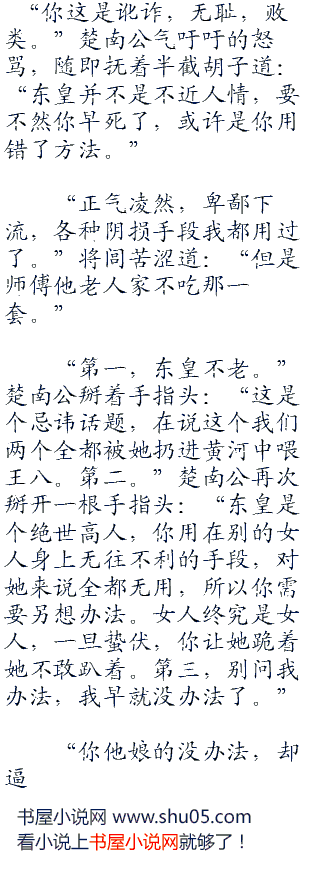 “你这是讹诈，无耻，败
类。”楚南公气吁吁的怒
骂，随即抚着半截胡子道：
“东皇并不是不近人情，要
不然你早死了，或许是你用
错了方法。”
“正气凌然，卑鄙下
流，各种阴损手段我都用过
了。”将闾苦涩道：“但是
师傅他老人家不吃那一
套。”
“第一，东皇不老。”
楚南公掰着手指头：“这是
个忌讳话题，在说这个我们
两个全都被她扔进黄河中喂
王八。第二。”楚南公再次
掰开一根手指头：“东皇是
个绝世高人，你用在别的女
人身上无往不利的手段，对
她来说全都无用，所以你需
要另想办法。女人终究是女
人，一旦蛰伏，你让她跪着
她不敢趴着。第三，别问我
办法，我早就没办法了。”
“你他娘的没办法，却
逼
书屋小说网 www.shu05.com
看小说上书屋小说网就够了！